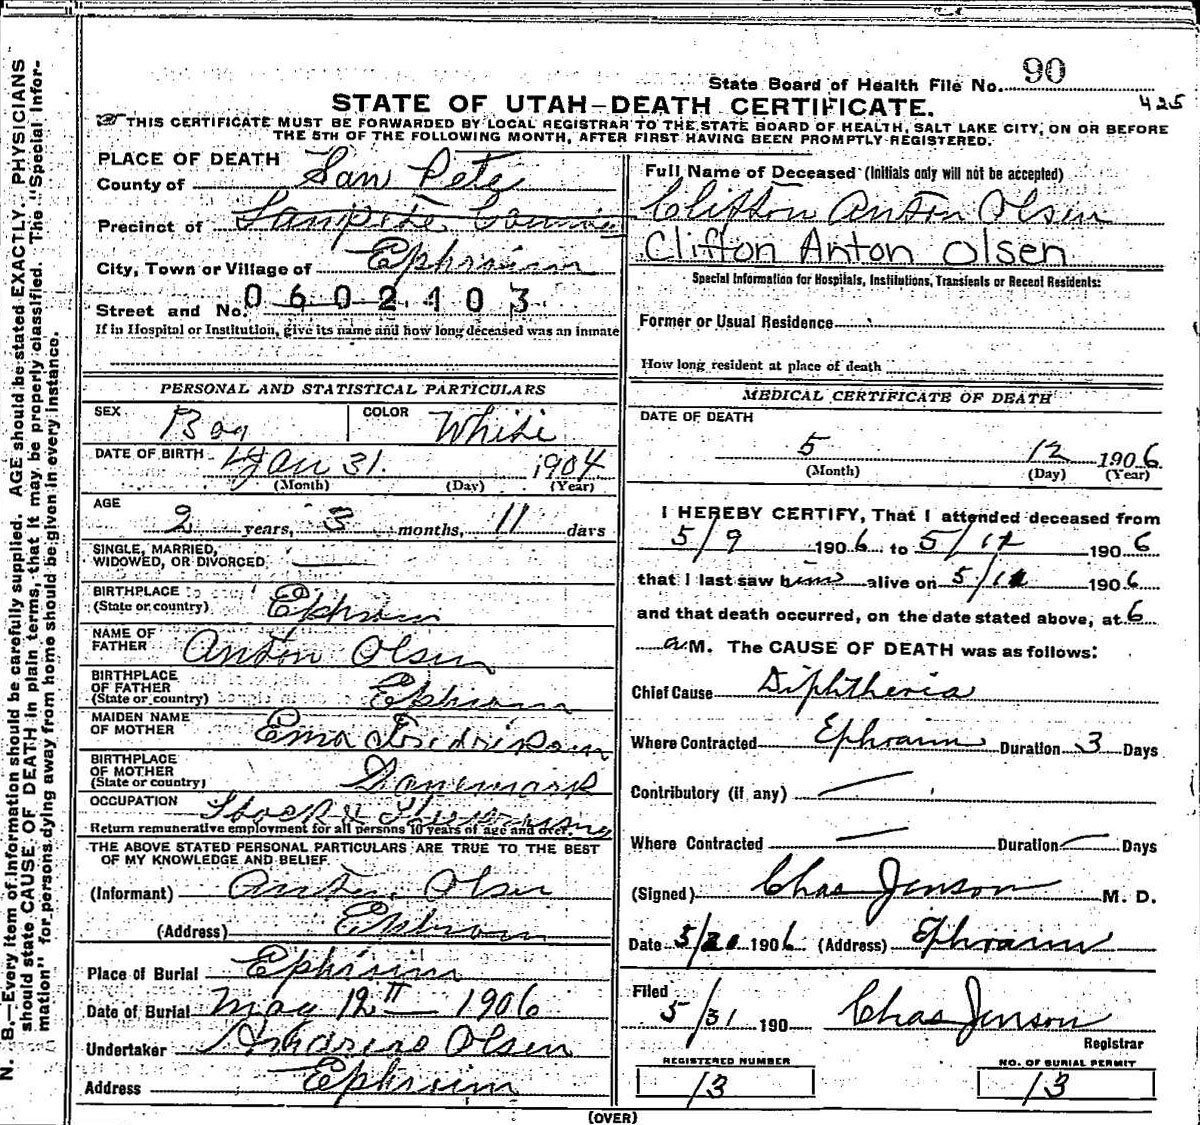 State Board of Health File No. 90
425
STATE OF UTAH—DEATH CERTIFICATE.
THIS CERTIFICATE MUST BE FORWARDED BY LOCAL REGISTRAR TO THE STATE BOARD OF HEALTH, SALT LAKE CITY, ON OR BEFORE
THE 5TH OF THE FOLLOWING MONTH, AFTER FIRST HAVING BEEN PROMPTLY REGISTERED.
N. B.—Every item of Information should be carefully supplied. AGE should be stated EXACTLY. PHYSICIANS
should state CAUSE OF DEATH in plain terms, that it may be properly classified. The "Special Infor-
mation" for persons dying away from home should be given in every instance.
PLACE OF DEATH
County of San Pete
Precinct of Sanpete
City, Town or Village of Ephraim
Street and No. 0602403
If in Hospital or Institution, give its name and how long deceased was an inmate
PERSONAL AND STATISTICAL PARTICULARS
SEX Boy COLOR White
DATE OF BIRTH Jan 31. 1904
(Month) (Day) (Year)
AGE
2 years, 3 months, 11 days
SINGLE, MARRIED,
WIDOWED, OR DIVORCED
BIRTHPLACE
(State or country) Ephraim
NAME OF
FATHER Anton Olsen
BIRTHPLACE
OF FATHER
(State or country) Ephraim
MAIDEN NAME
OF MOTHER Ema
BIRTHPLACE
OF MOTHER
(State or country) Danemark
OCCUPATION Stock &
Return remunerative employment for all persons 10 years of age and over.
THE ABOVE STATED PERSONAL PARTICULARS ARE TRUE TO THE BEST
OF MY KNOWLEDGE AND BELIEF.
(Informant) Anton Olsen
(Address) Ephraim
Place of Burial Ephraim
Date of Burial May 12 1906
Undertaker Olsen
Address Ephraim
Full Name of Deceased (Initials only will not be accepted)
Clifton Anton Olsen
Clifton Anton Olsen
Special Information for Hospitals, Institutions, Transients or Recent Residents:
Former or Usual Residence
How long resident at place of death
MEDICAL CERTIFICATE OF DEATH
DATE OF DEATH
5 12 1906
(Month) (Day) (Year)
I HEREBY CERTIFY, That I attended deceased from
5/9 1906 to 5/12 1906
that I last saw him alive on 5/12 1906
and that death occurred, on the date stated above, at 6
a M. The CAUSE OF DEATH was as follows:
Chief Cause Diphtheria
Where Contracted Ephraim Duration 3 Days
Contributory (if any)
Where Contracted Duration Days
(Signed) Chas Jenson M. D.
Date 5/20 1906 (Address) Ephraim
Filed
5/31 190 Chas Jenson
Registrar
REGISTERED NUMBER
13
NO. OF BURIAL PERMIT
13
(OVER)